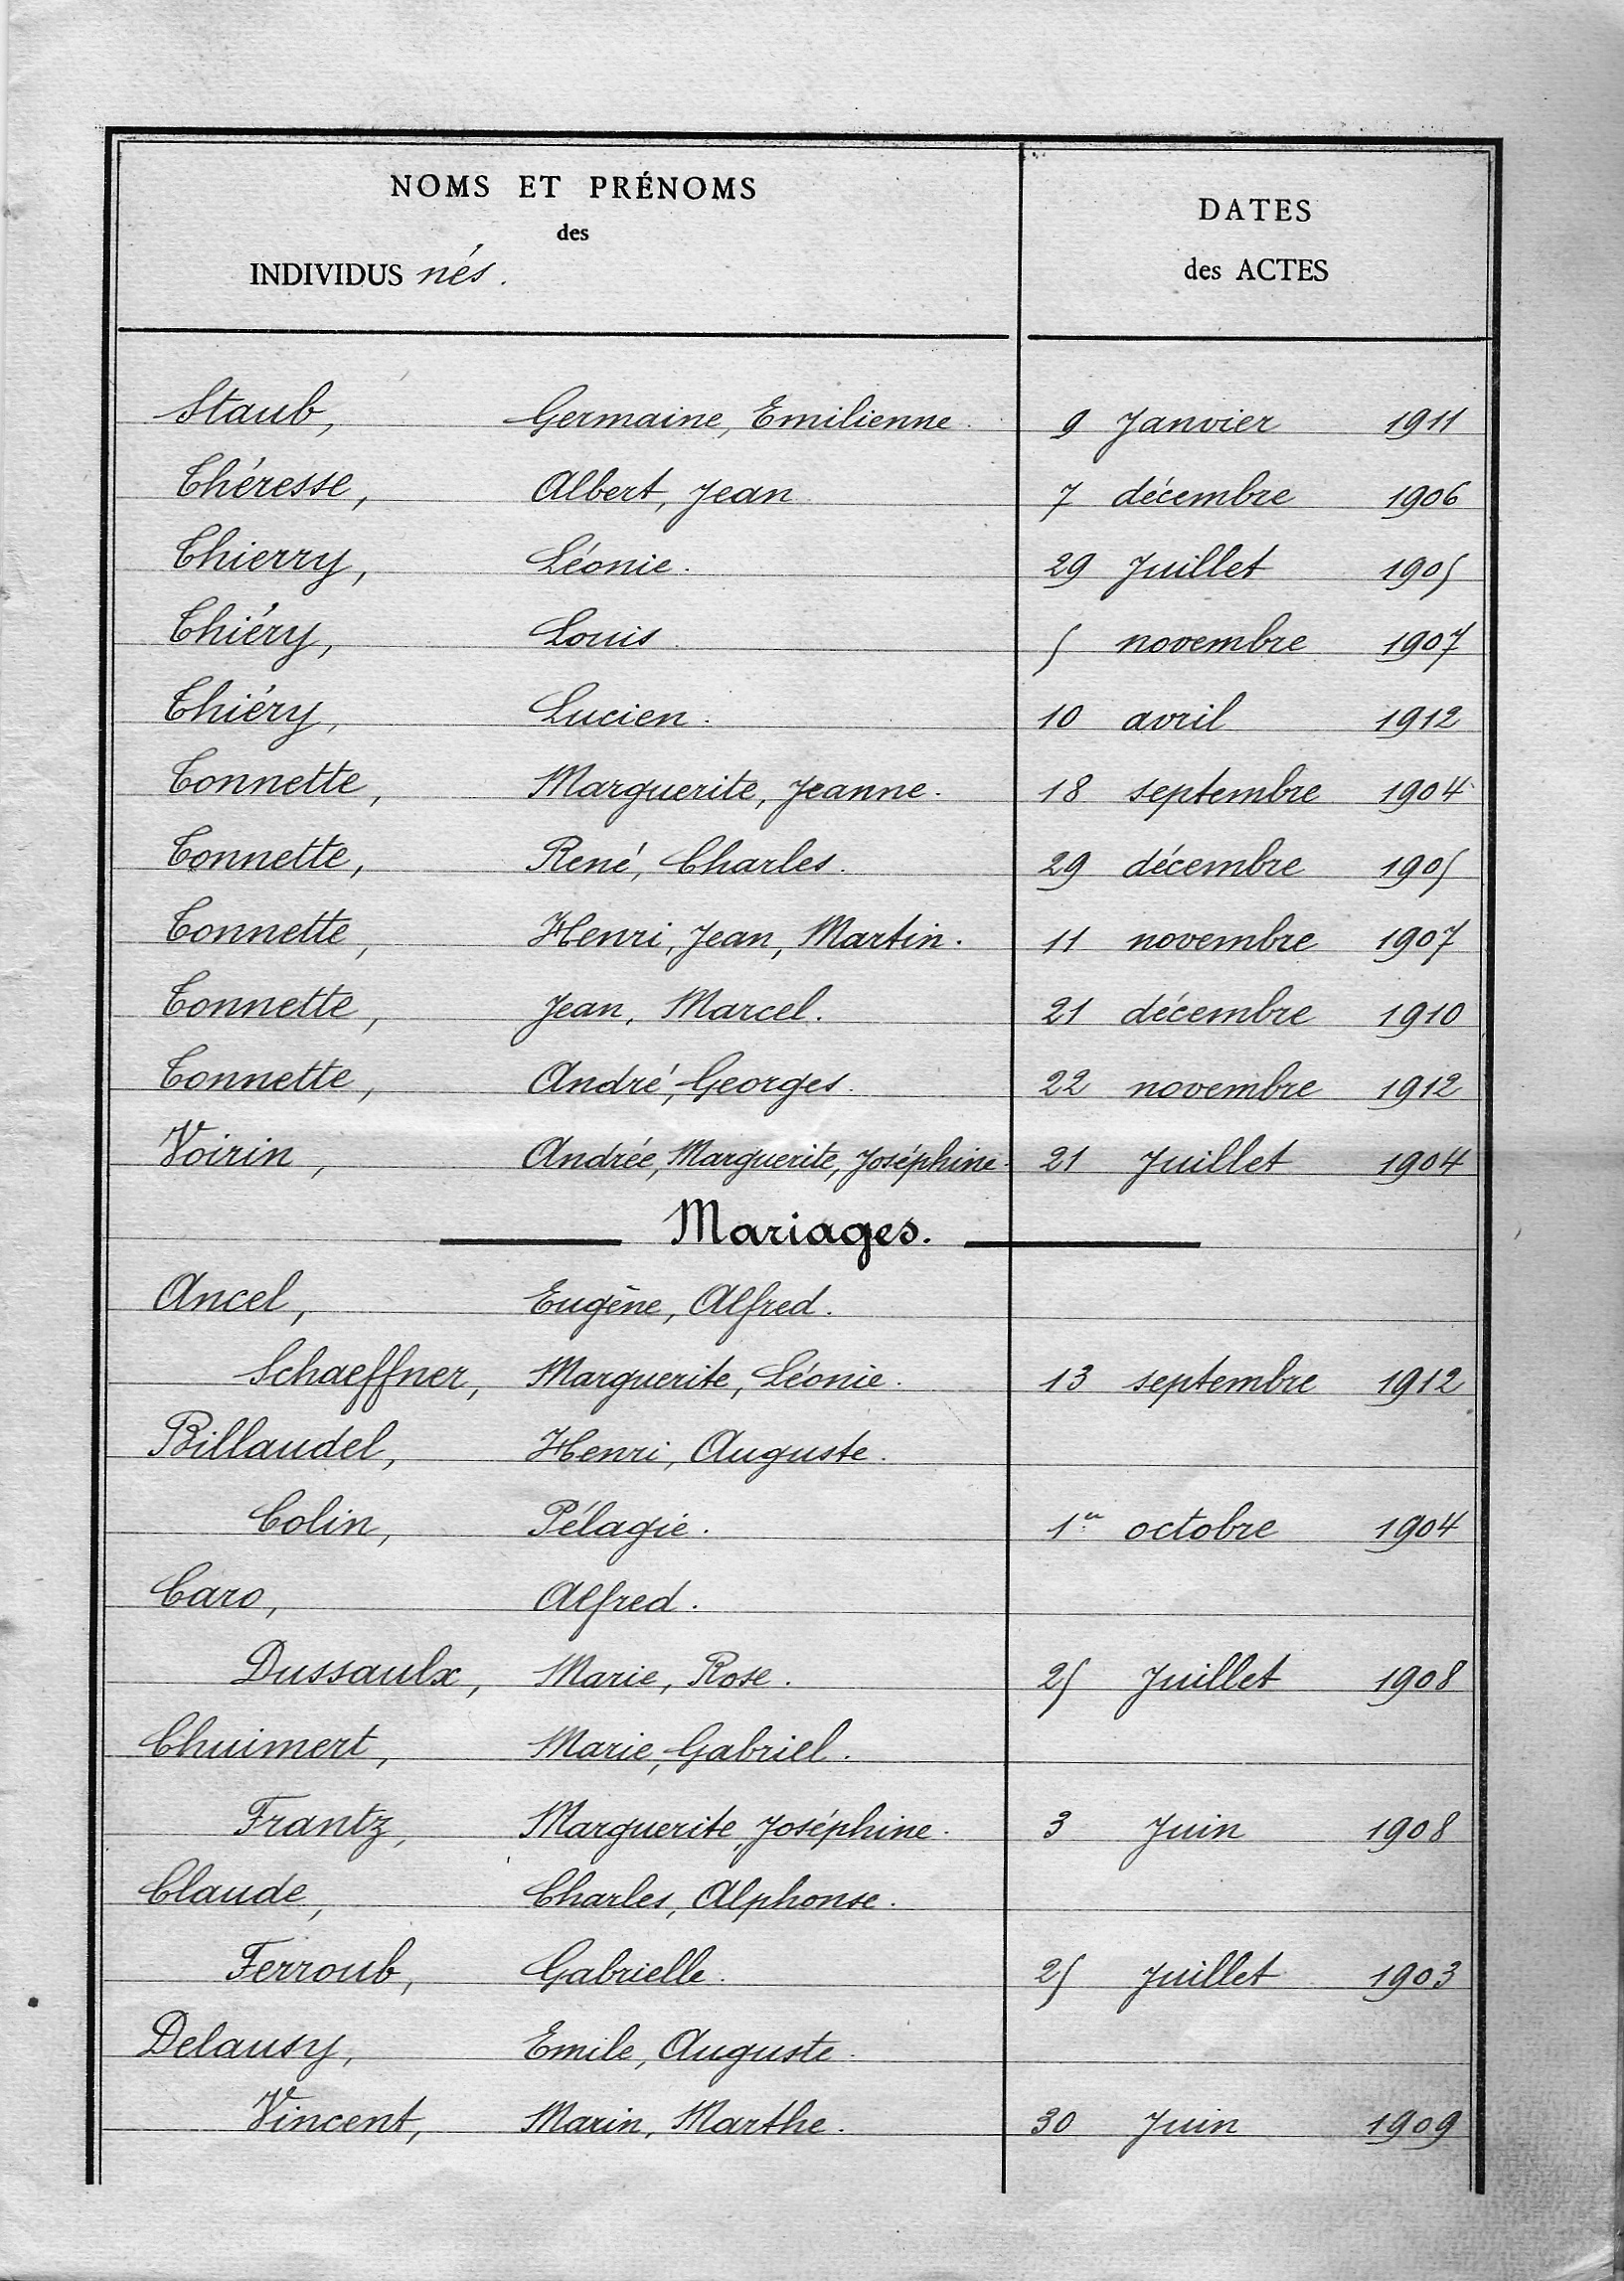 NOMS ET PRÉNOMS
des
INDIVIDUS nés.
DATES
des ACTES
Staub, Germaine, Emilienne. 9 Janvier 1911
Théresse, Albert, Jean 7 décembre 1906
Thierry, Léonie. 29 Juillet 1905
Thiéry, Louis. 5 novembre 1907
Thiéry, Lucien. 10 avril 1912
Tonnette, Marguerite, Jeanne. 18 septembre 1904
Tonnette, René, Charles. 29 décembre 1905
Tonnette, Henri, Jean, Martin. 11 novembre 1907
Tonnette, Jean, Marcel. 21 décembre 1910
Tonnette, André, Georges. 22 novembre 1912
Voirin, Andrée, Marguerite, Joséphine. 21 Juillet 1904
Mariages.
Ancel, Eugène, Alfred.
Schaeffner, Marguerite, Léonie. 13 septembre 1912
Billaudel, Henri, Auguste.
Colin, Pélagie. 1er octobre 1904
Caro, Alfred.
Dussaulx, Marie, Rose. 25 Juillet 1908
Chuimert, Marie, Gabriel.
Frantz, Marguerite, Joséphine. 3 Juin 1908
Claude, Charles, Alphonse.
Ferroub, Gabrielle. 25 Juillet 1903
Delausy, Emile, Auguste.
Vincent, Marin, Marthe. 30 Juin 1909